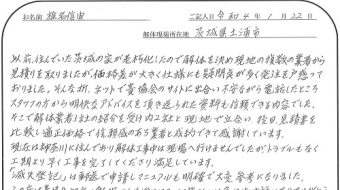 お名前 ご記入日 令和4年1月22日
解体現場所在地 茨城県土浦市
以前、住んでいた茨城の家が老朽化したので解体を決め現地の複数の業者から
見積りを取りましたが、価格差が大きく仕様にも疑問点が多く発注を戸惑って
おりました。そんな折、ネットで貴協会のサイトに出会い不安ながら電話したところ
スタッフの方から明快なアドバイスを頂き送られた資料も信頼できる内容でした。
そこで解体業者3社の紹介を受け内2社と現地で立会い後日見積書を
比較し適正価格で信頼感のある業者と成約できて感謝しています。
現在は神奈川に住んでおり解体工事中は現場へ行けませんでしたが、トラブルもなく
工期より早く工事を完了してくださり満足しています。
「滅失登記」は郵送で申請しマニュアルも明確で大変参考になりました。